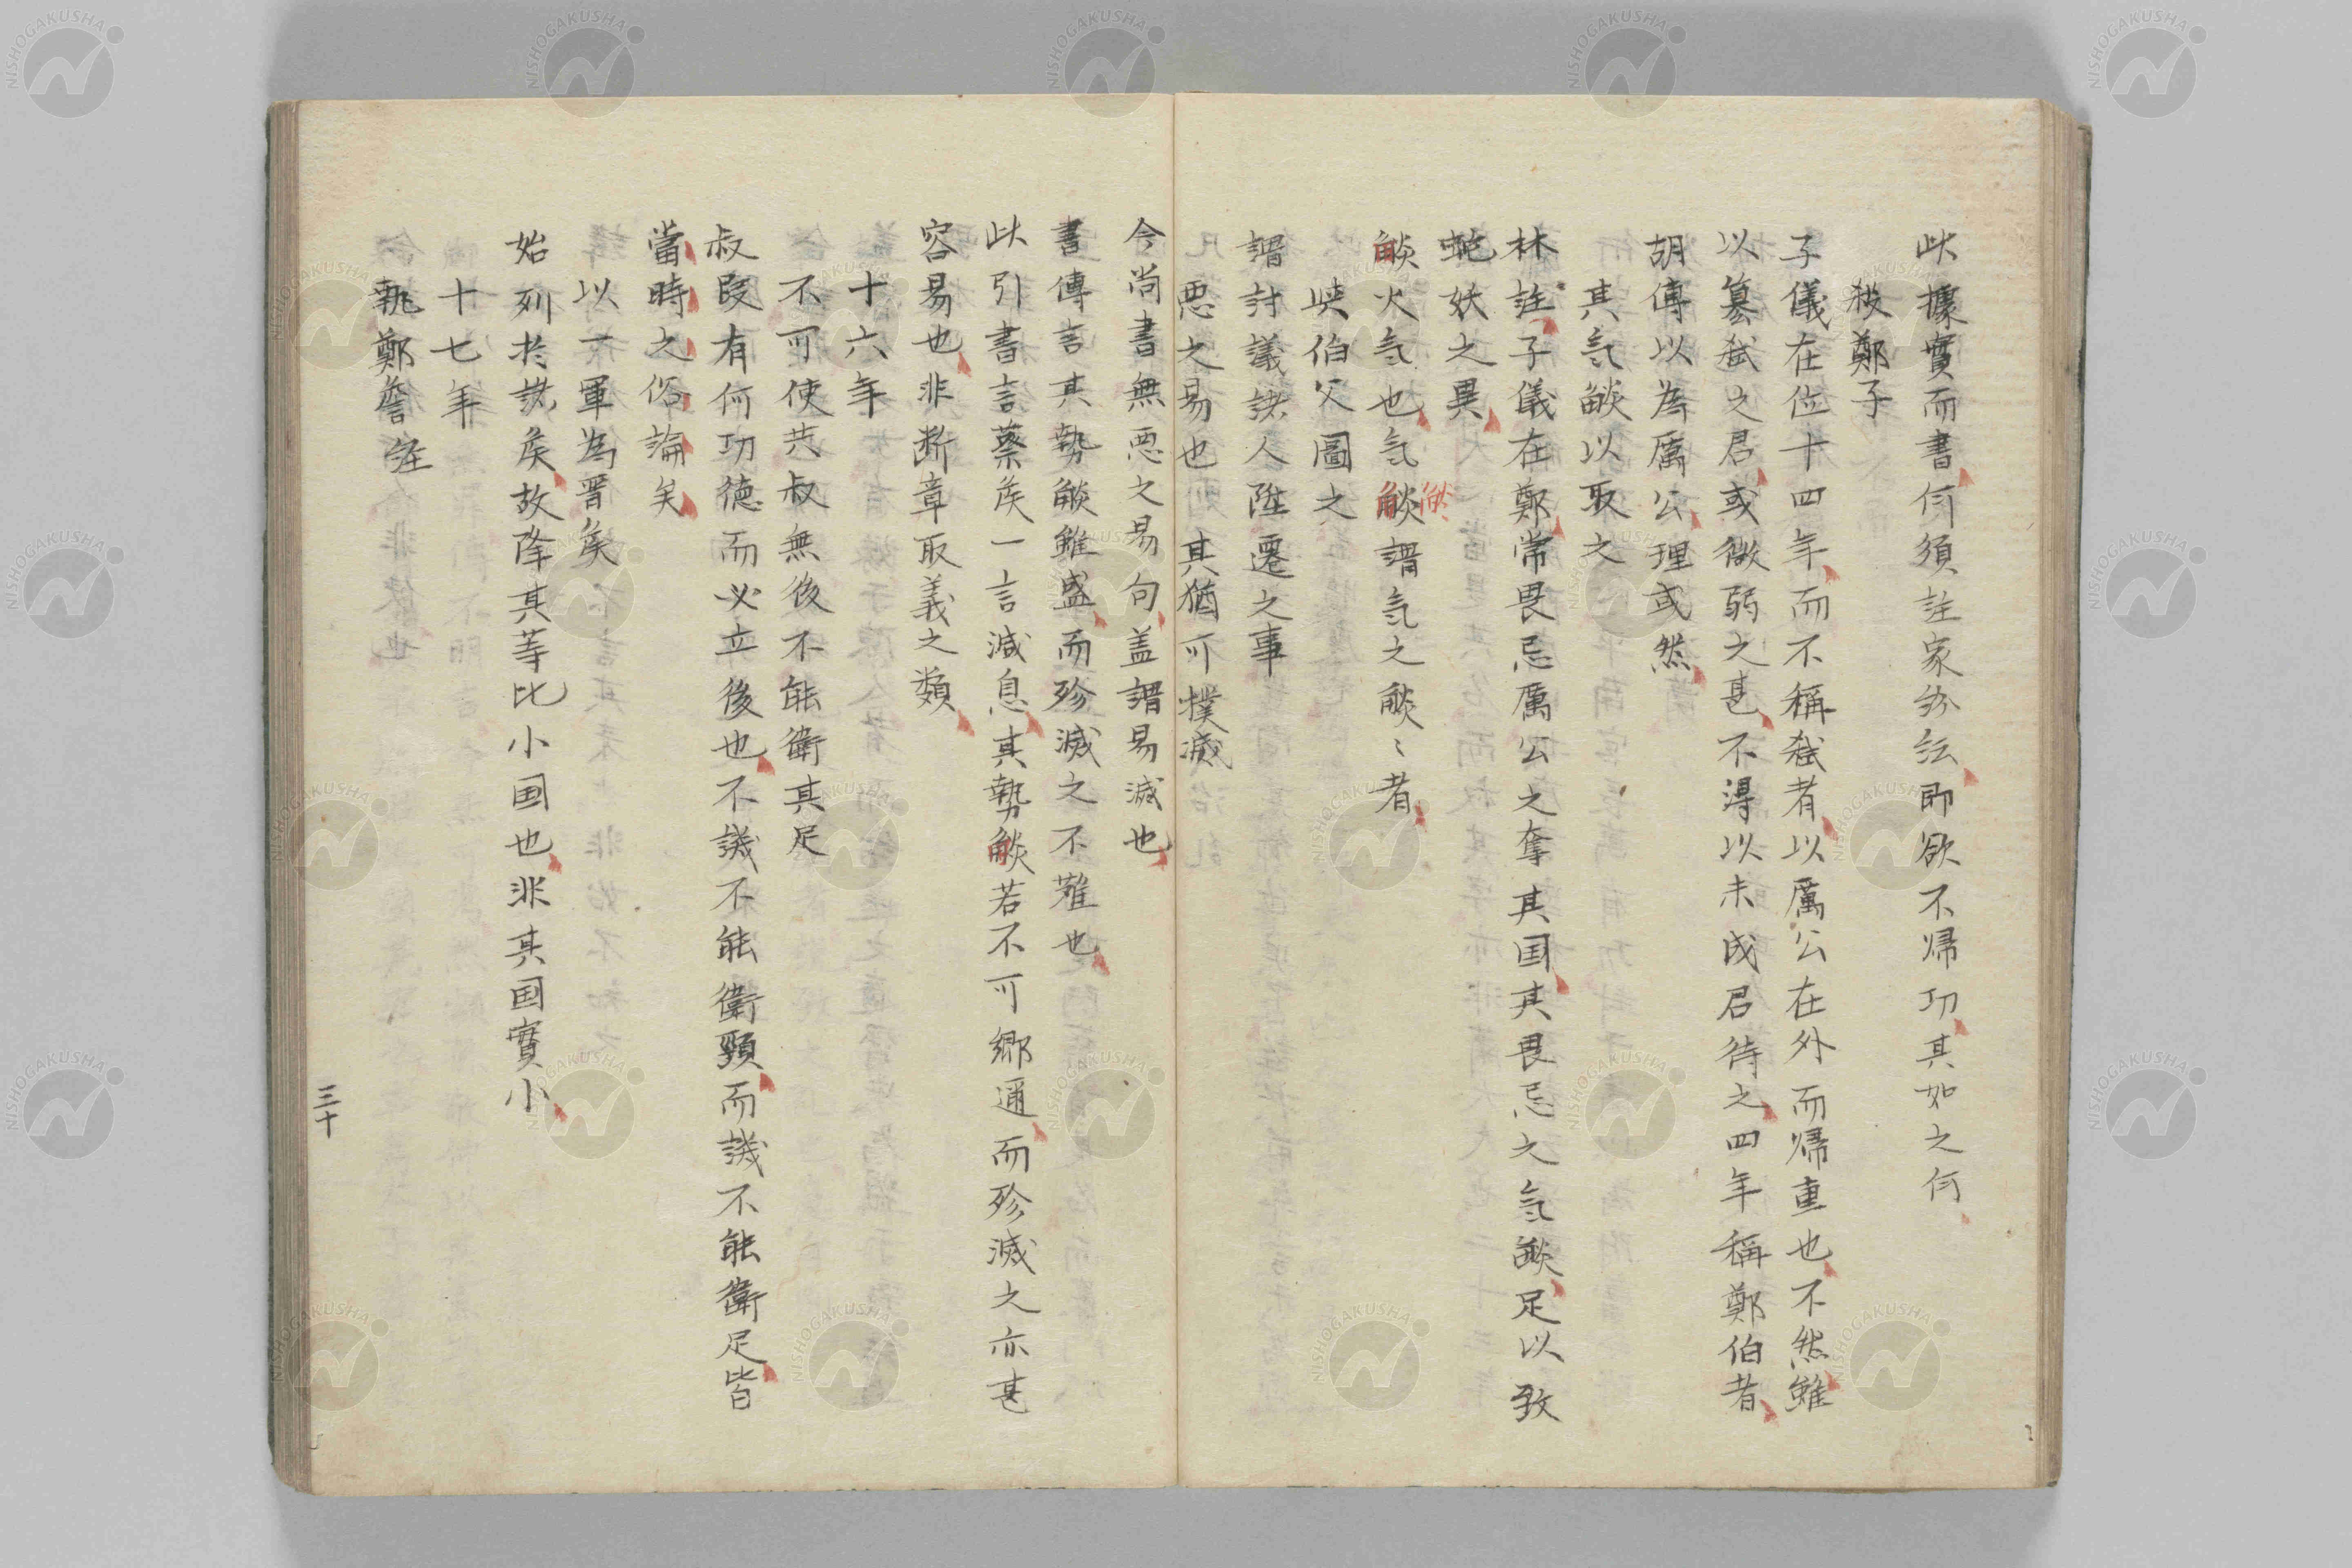 此據實而書何須註家紛紜即欲不帰功其如之何
殺鄭子
子儀在位十四年而不稱弒者以厲公在外而帰重也不然雖
以簒弒之君或微弱之甚不得以未成君待之四年稱鄭伯者
胡傳以為厲公理或然
其气燄以取之
林註子儀在鄭常畏忌厲公之奪其国其畏忌之気燄足以致
蛇妖之異
燄火気也気燄謂気之燄〻者
燄
與伯父圖之
謂討議誅人陞遷之事
悪之易也其猶可撲滅
今尚書無悪之易句盖謂易滅也
書傳言其勢燄雖盛而殄滅之不難也
此引書言蔡侯一言滅息其勢燄若不可郷邇而殄滅之亦甚
容易也非断章取義之類
十六年
不可使共叔無後不能衛其足
叔段有何功徳而必立後也不譏不能衛頸而譏不能衛足皆
當時之俗論矣
以一軍為晋侯
始列於諸侯故降其等比小国也非其国實小
十七年
執鄭詹 經
三十
NISHOGAKUSHA